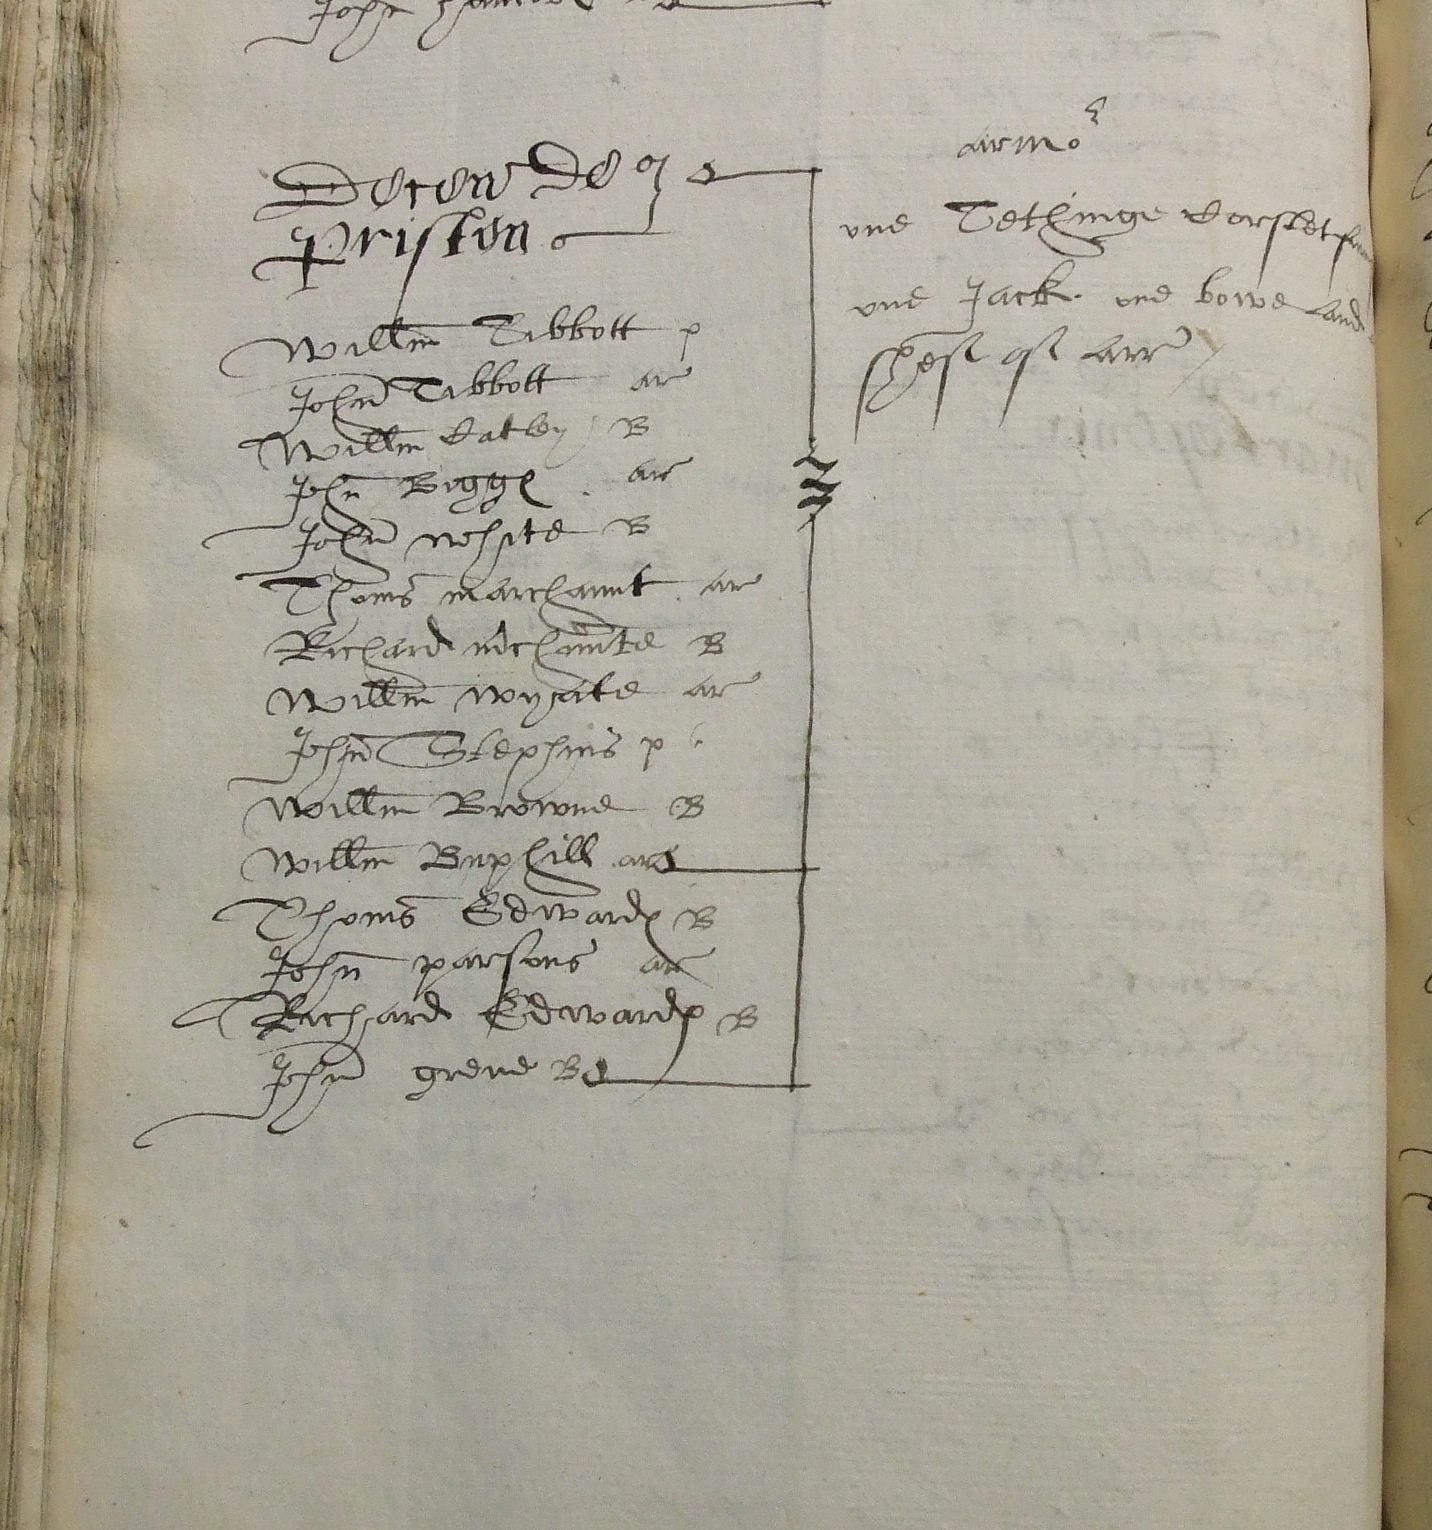 John
Decen de
Priston
Willm Tibbott p
John Tibbott ar
Willm Catley B
John Bigge ar
John white B
Thoms marchannt ar
Richard mrchannte B
Willm wyate ar
John Stephins p
Willm Browne B
Willm Buphill ar
Thoms Edwards B
John parsons ar
Richard Edwards B
John grene B
armor
one Tethinge Corslet
one Jack one bowe and
shef of arr